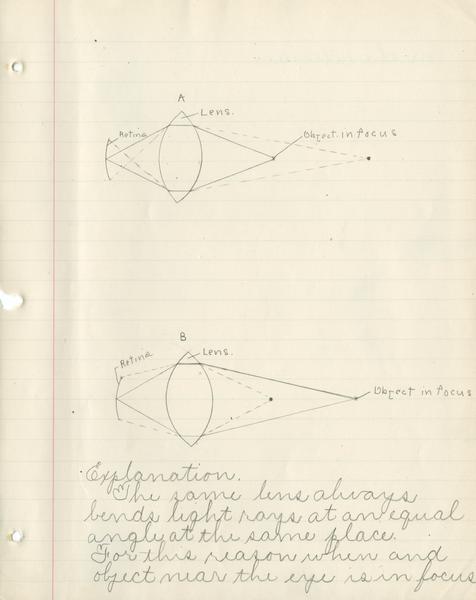 A
Lens.
Retina
Object in focus
B
Retina
Lens.
Object in focus
Explanation.
The same lens always
bends light rays at an equal
angle at the same place.
For this reason when and
object near the eye is in focus